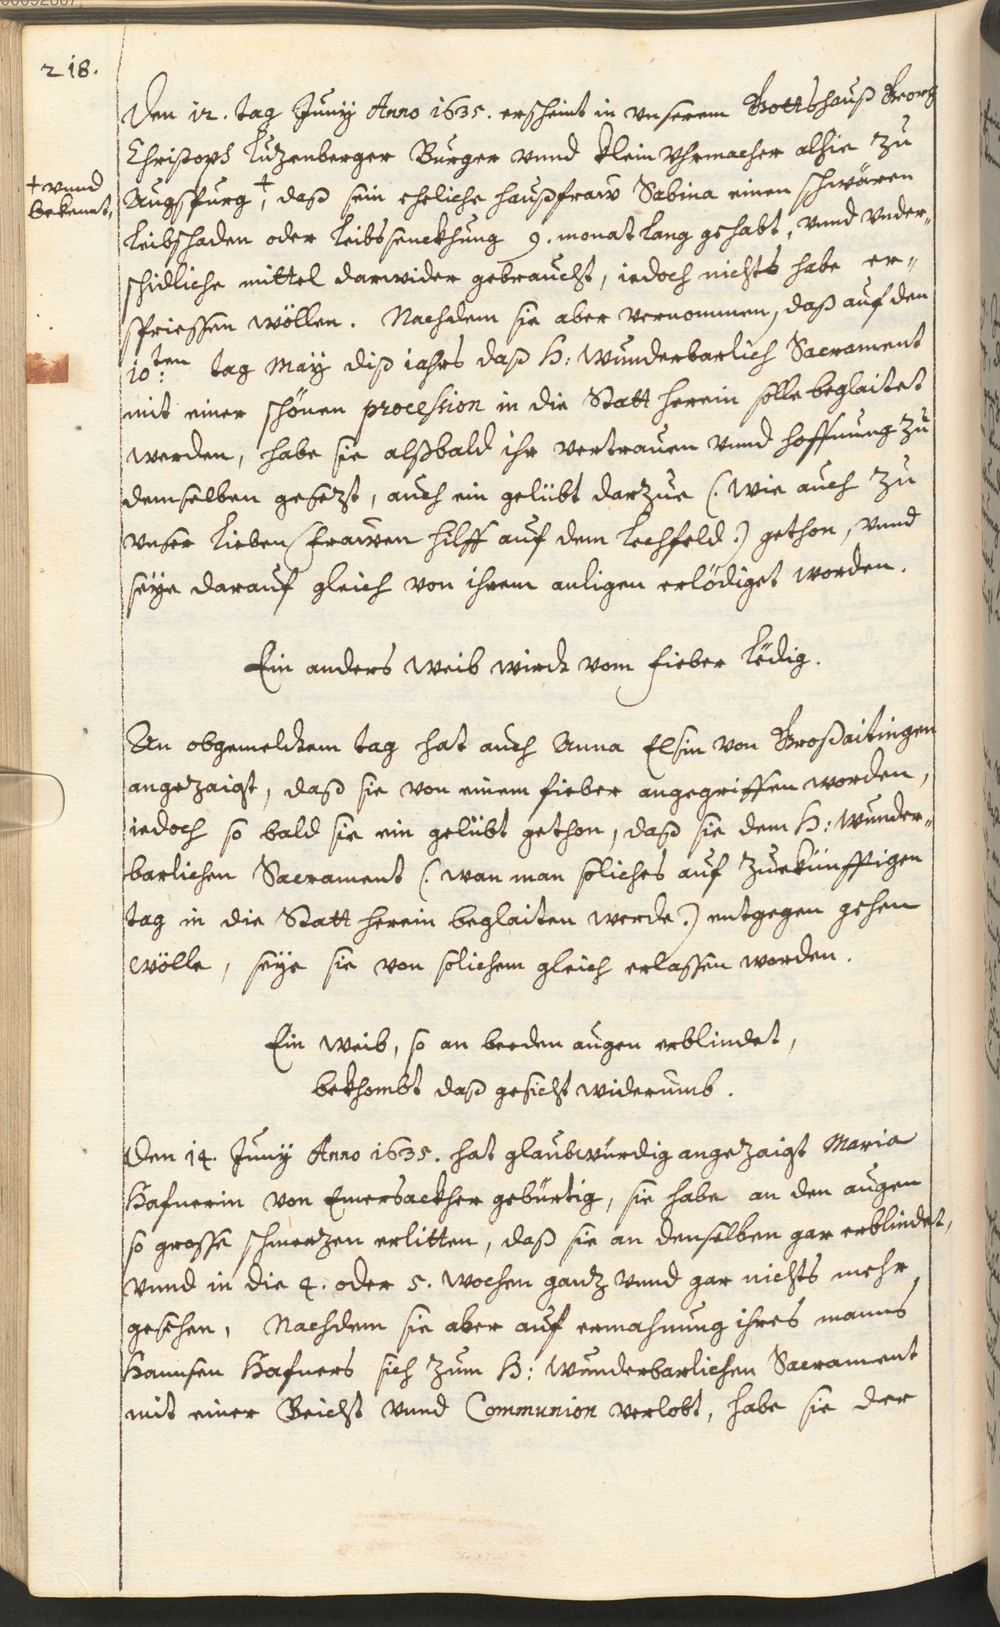 218.
Den 12. tag Junÿ Anno 1635. erscheint in vnserem Gottshauß Georg
Christoph Lutzenberger Burger vnnd klein Vhrmacher alhie zu
Augspurg †, daß sein eheliche haußfraw Sabina einen schwären
† vnnd
bekennt,
leibschaden oder leibssenckhung 9. monat lang gehabt, vnnd vnder-
schidliche mittel darwider gebraucht, iedoch nichts habe er-
spriessen wöllen. Nachdem sie aber vernommen, daß auf den
10ten: tag Maÿ diß iahrs daß H: wunderbarlich Sacrament
mit einer schönen procession in die Statt herein solle beglaitet
werden, habe sie alßbald ihr vertrauen vnnd hoffnung zu
demselben gesezt, auch ein gelübt darzue (. wie auch zu
vnser lieben frawen hilff auf dem Lechfeld.) gethon, vnnd
seÿe darauf gleich von ihrem anligen erlödiget worden.
Ein anders weib wirdt vom fieber lödig.
An obgemeldtem tag hat auch Anna Elsin von Großaitingen
angezaigt, daß sie von einem fieber angegriffen worden,
iedoch so bald sie ein gelübt gethon, daß sie dem H: wunder-
barlichen Sacrament (. wan man soliches auf zuekünfftigen
tag in die Statt herein beglaiten werde.) entgegen gehen
wölle, seÿe sie von solichem gleich erlassen worden.
Ein weib, so an beeden augen erblindet,
bekhombt daß gesicht widerumb.
Den 14. Junÿ Anno 1635. hat glaubwürdig angezaigt Maria
Hafnerin von Emersackher gebürtig, sie habe an den augen
so grosse schmertzen erlitten, daß sie an denselben gar erblindet,
vnnd in die 4. oder 5. wochen gantz vnnd gar nichts mehr
gesehen, Nachdem sie aber auf ermahnung ihres manns
Hannsen Hafners sich zum H: wunderbarlichen Sacrament
mit einer Beicht vnnd Communion verlobt, habe sie der